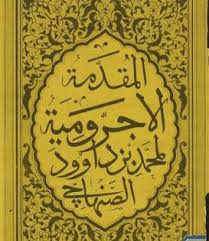 المقدمة
الاجرومية
لمحمد بن داوود
الصنهاجي